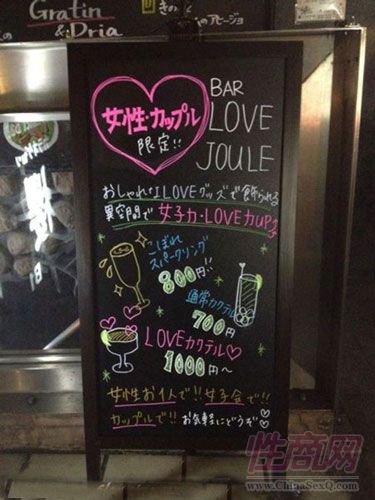 Gratin
& Dria
のアヒージョ
女性・カップル
限定!!
BAR
LOVE
JOULE
おしゃれなLOVEグッズで飾られる
異空間で女子力・LOVE力UP
こぼれ
スパークリング
800円!!
通常カクテル
700円
LOVEカクテル♡
1000円〜
女性お1人で!!女子会で!!
カップルで!!お気軽にどうぞ♡
性商网
www.ChinaSexQ.com